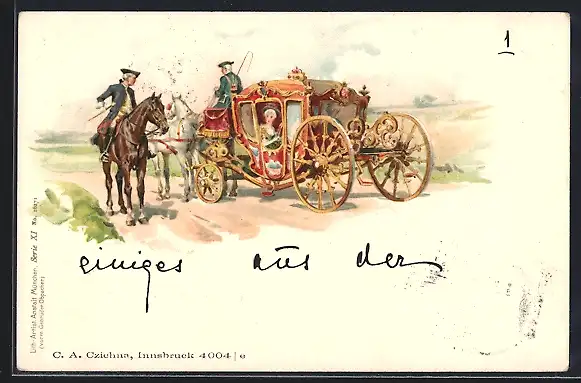 1
einiges aus der
Lith.-Artist. Anstalt München Serie XI No. 16271
(vorm. Gebrüder Obpacher)
C. A. Czichna, Innsbruck 4004 | e